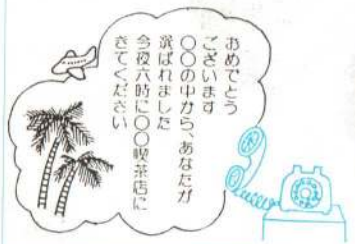 おめでとう
ございます
〇〇の中から、あなたが
選ばれました
今夜六時に〇〇喫茶店に
きてください